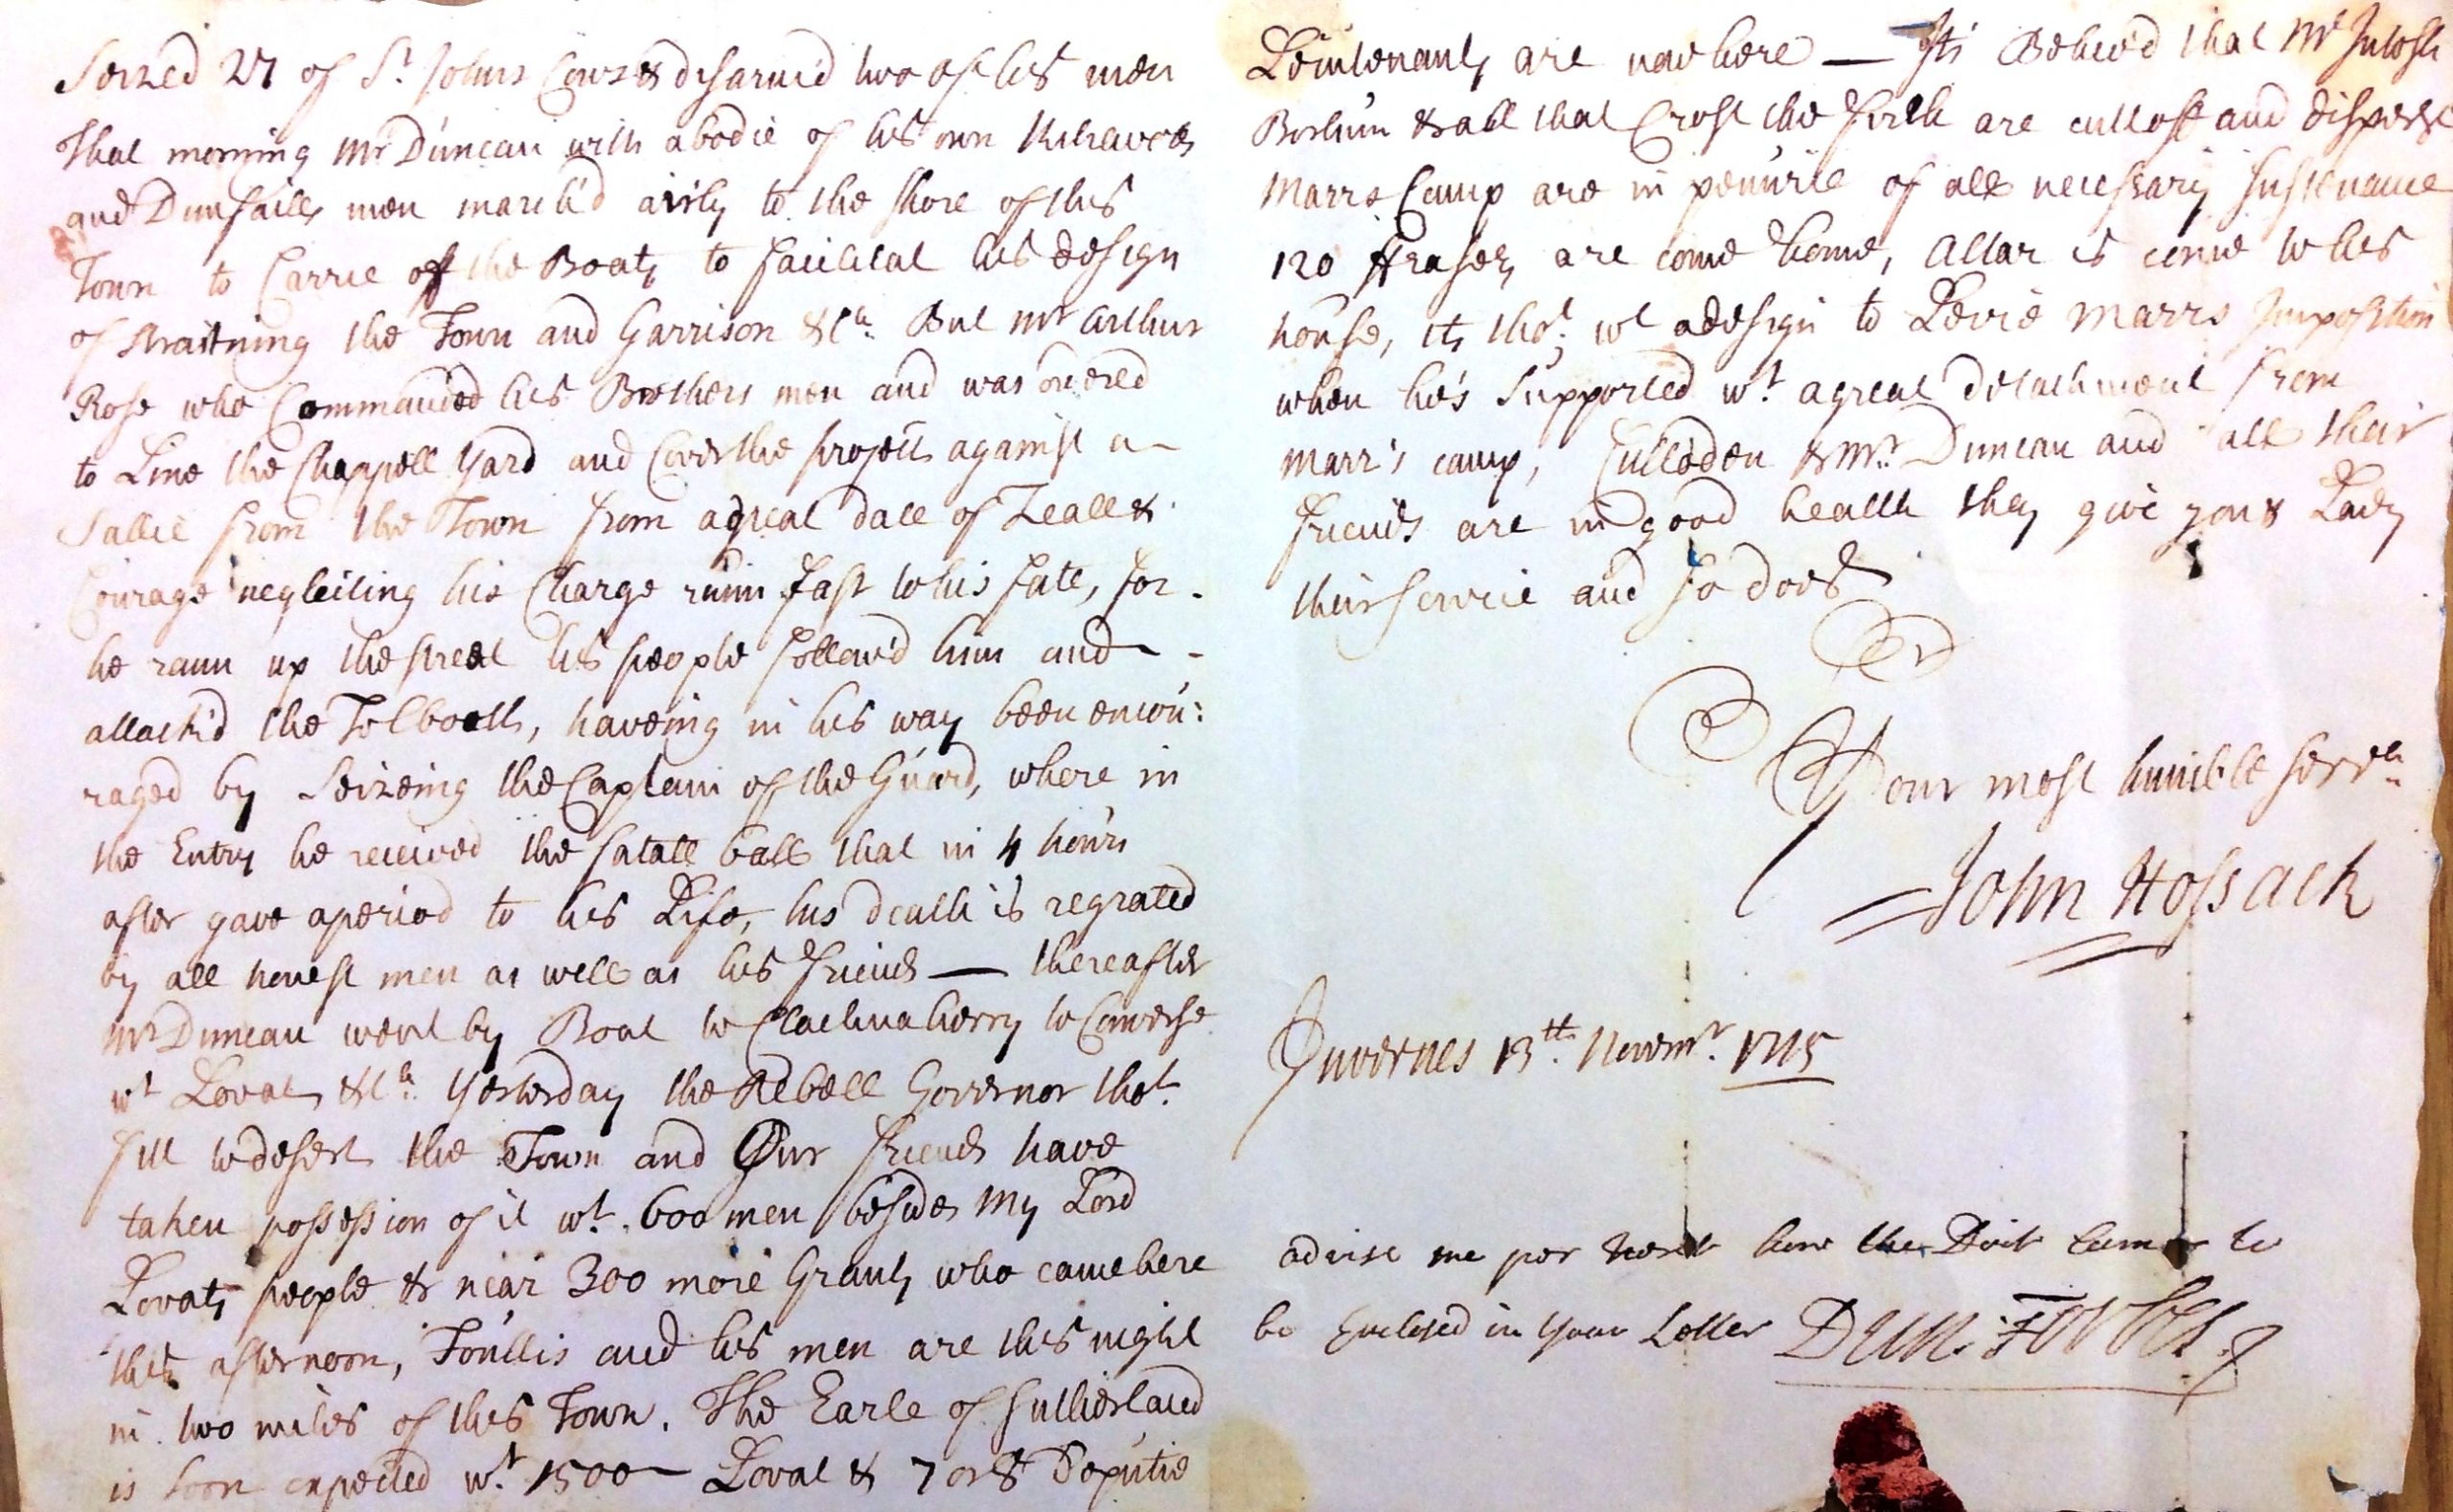 Seized 27 of St. Johns Cows & disarmed two of his men
That morning Mr Duncan with abodie of his own Kilravocks
and Dunfails men march'd airly to the shore of this
Town to Carrie off the Boats to facilitat his design
of straitning the Town and Garrison &ca. But Mr Arthur
Rose who Commanded his Brothers men and was ordered
to Line the Chappell Yard and Cover the project against a
Sallie from the Town from agreat dale of Zeall &
Courage neglecting his Charge runn fast to his fate, for
he rann up the street his people follow'd him and
attack'd the Tolbooth, haveing in his way been encou:
raged by Seizeing the Captain of the Guard, where in
the Entry he received the fatall ball that in 4 hours
after gave aperiod to his Life, his death is regrated
by all honest men as well as his friends — thereafter
Mr Duncan went by Boat to Clachnaherry to Converse
wt Lovat &ca. Yesterday the Rebell Governor thot.
fitt to desert the Town and Our friends have
taken possession of it wt. 600 men besides My Lord
Lovats people & near 300 more Grants who came here
this afternoon, Foullis and his men are this night
in two miles of this Town. The Earle of Sutherland
is soon expected wt. 1500 — Lovat & 7 or 8 Deputie
Lieutenants are now here — Its Beliv'd that Mc Intosh
Borlum & all that Crost the firth are cutt off and disperst
Marrs Camp are in penurie of all necessary sustenance
120 ffrasers are come home, Altar is come to his
house, its thot. wt adesign to Levie Marrs Imposition
when he's Supported wt. agreat detachment from
Marr's camp, Culloden & Mr. Duncan and all their
friends are in good health they give you & Lady
their service and so does
Sr
Your most humble servt
John Hossack
Invernes 13th. Novemr. 1715
advise me per next how the Doit came to
be Enclosed in your Letter Dun: Forbes